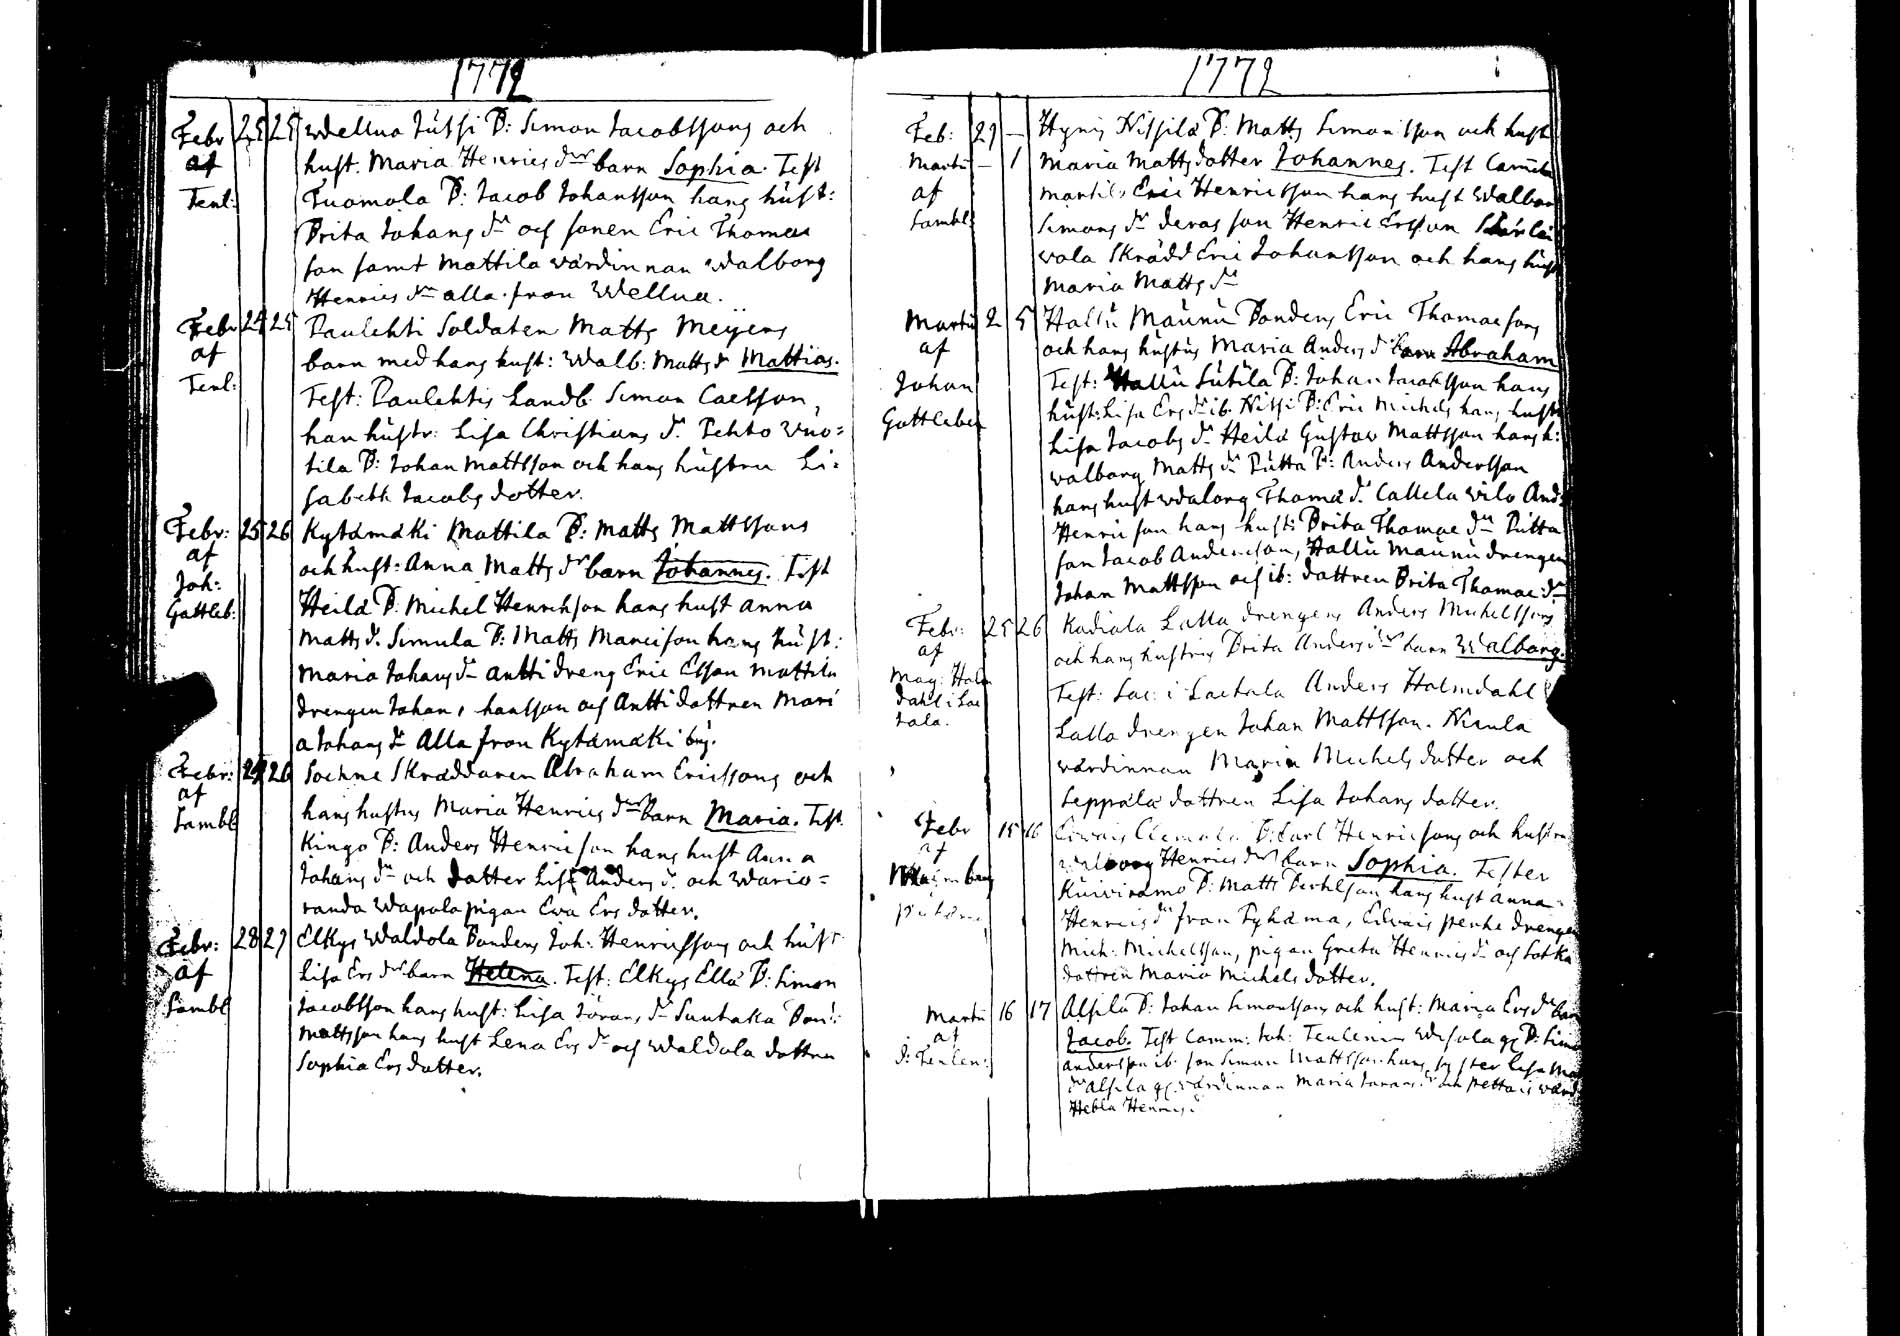 1772
Febr 25 25 Wellua Jussi B: Simon Jacobssons och
af hust. Maria Henrics dr barn Sophia. Test
Tenl: Tuomola B: Jacob Johansson hans hust:
Brita Johans dr och sonen Eric Thomas
son samt Mattila wärdinnan Walborg
Henrics dr alla fron Wellua.
Febr 24 25 Paulehti Soldaten Matts Meijers
af barn med hans hust: Walb: Matts dr Mattias.
Tenl: Test: Paulehtis Landb. Simon Carlsson,
han hustr: Lisa Christians dr. Pehto Uuo=
tila B: Johan Mattsson och hans hustru Li=
sabeth Jacobs dotter.
Febr: 25 26 Kytämäki Mattila B: Matts Mattssons
af och hust: Anna Matts dr barn Johannes. Test
Joh: Heilä B: Michel Henrichson hans hust Anna
Gottleb: Matts dr. Simula B: Matts Marcison hans hust:
Maria Johans dr Antti dreng Eric Ersson Mattila
drengen Johan, hansson och Antti dottren Mari
a Johans dr Alla fron Kytämäki by.
Febr: 24 26 Soehne Skräddaren Abraham Ericssons och
af hans hustrus Maria Henrics dr barn Maria. Test.
Sambl Kingo B: Anders Henricson hans hust Anna
Johans dr och dotter Lisa Anders dr. och Wario=
randa Wapola pigan Ewa Ers dotter.
Febr: 28 29 Elkys Waldola Bondens Joh: Henricssons och hustr
af Lisa Ers dr barn Helena. Test: Elkys Ella B: Simon
Sambl Jacobsson hans hust: Lisa Jörans dr Suutaka Bon:
Mattsson hans hust Lena Ers dr och Waldola dottren
Sophia Ers dotter.
1772
Feb: 29 – Hynis Nissilä B: Matts Simonsson och hust
Martii – 1 Maria Matts dotter Johannes. Test
af Eric Henricsson hans hust Walbor
Sambl: Simons dr deras son Henric Ersson
wola Skrädd Eric Johansson och hans hust
Maria Matts dr
Martii 2 5 Hallu Maunu Bondens Eric Thomaesons
af och hans hustrus Maria Anders dr barn Abraham
Johan Test: Hallu Sutila B: Johan Jacobsson hans
Gottleben hust: Lisa Ers dr ib. Nissi B: Eric Michels hans hustr
Lisa Jacobs dr Heilä Gustav Mattsson hans h:
Walborg Matts dr Putta B: Anders Andersson
hans hust Walorg Thomae dr. Callela wilo And
Henricson hans hust: Brita Thomae dr Putta
son Jacob Andersson, Hallu Maunu drengen
Johan Mattsson och ib: dottren Brita Thomae dr
Febr: 25 26 Kadiala Lalla drengens Anders Michelssons
af och hans hustrus Brita Anders dr barn Walborg.
Mag: Holm Test: Sac: i Laitala Anders Holmdahl
dahl i Lai Lalla drengen Johan Mattsson. Nicula
tala. wärdinnan Maria Michels dotter och
Seppälä dottren Lisa Johans dotter.
Febr 15 16 B: Carl Henricsons och hustru
af Walborg Henrics dr barn Sophia. Tester
Kuiviramo B: Matts Bertilson hans hust Anna
Henrics dr fron Pyhäma, drengen
Mich: Michelsson, pigan Greta Henrics dr och Sotka
dottren Maria Michels dotter.
Martii 16 17 Alsila B: Johan Simonssons och hust: Maria Ers dr barn
af Jacob. Test Comm: Joh: Tenlenius B: Simo
J: Tenlen: Andersson ib. son Simon Mattsson hans syster Lisa
dr Alsila wärdinnan Maria dr och
Hebla Henrics dr